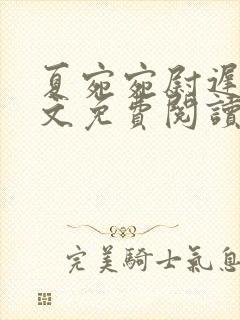 夏宛宛尉遲
文免費閱讀
完美騎士氣息